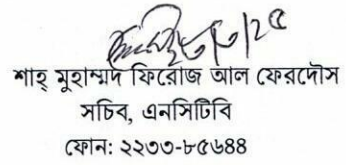 ৮/৩/২৫
শাহ্ মুহাম্মদ ফিরোজ আল ফেরদৌস
সচিব, এনসিটিবি
ফোন: ২২৩৩-৮৫৬৪৪